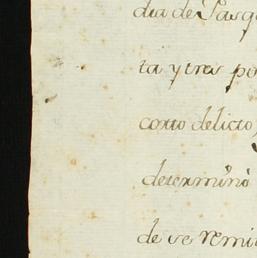 dia de Pasq
ta y tres po
corto delicto
determinó
de se remi